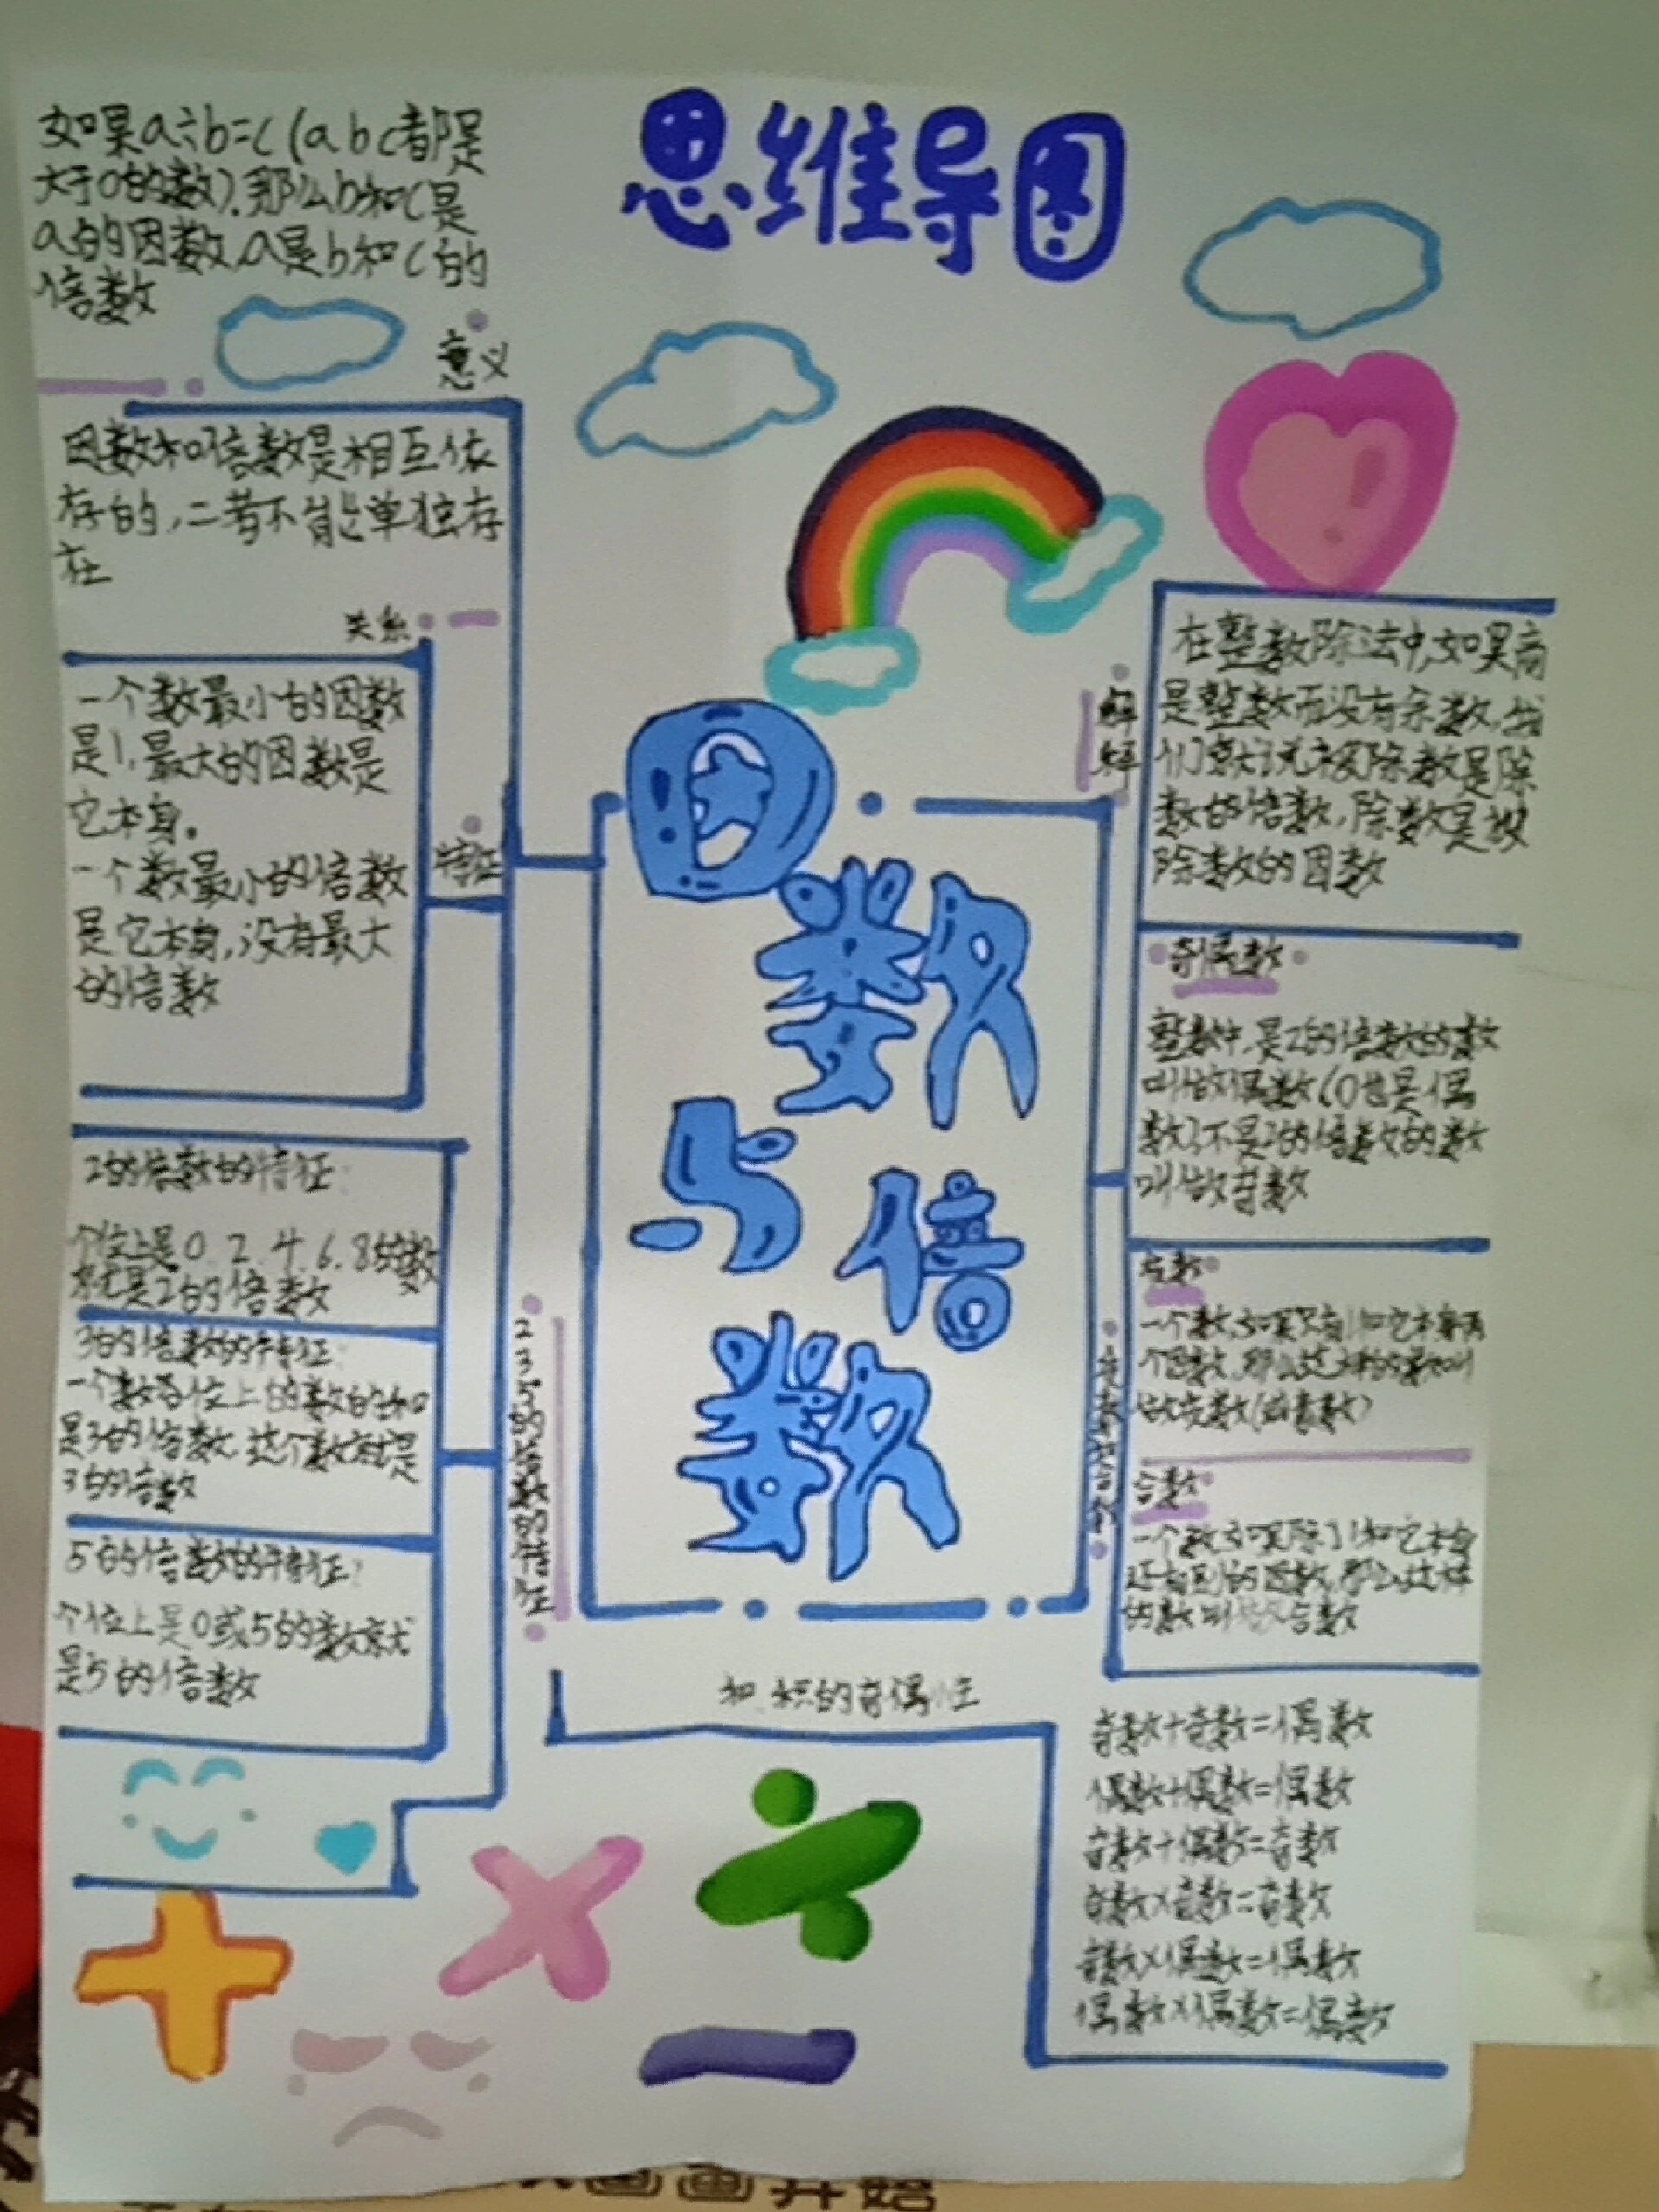 思维导图
如果a÷b=c(a b c都是
大于0的数).那么b和c是
a的因数,a是b和c的
倍数
意义
因数和倍数是相互依
存的,二者不能单独存
在
关系
一个数最小的因数
是1,最大的因数是
它本身。
一个数最小的倍数
是它本身,没有最大
的倍数
特征
2的倍数的特征:
个位上是0.2.4.6.8的数
就是2的倍数
3的倍数的特征:
一个数各位上的数的和
是3的倍数 这个数就是
3的倍数
5的倍数的特征:
个位上是0或5的数就
是5的倍数
2 3 5的倍数的特征
因数与倍数
在整数除法中,如果商
是整数而没有余数,我
们就说被除数是除
数的倍数,除数是被
除数的因数
奇偶数
整数中,是2的倍数的数
叫做偶数(0也是偶
数)不是2的倍数的数
叫做奇数
质数
一个数,如果只有1和它本身两
个因数,那么这样的数叫
做质数(或素数)
合数
一个数,如果除了1和它本身
还有别的因数,那么这样
的数叫做合数
和、积的奇偶性
奇数+奇数=偶数
偶数+偶数=偶数
奇数+偶数=奇数
奇数×奇数=奇数
奇数×偶数=偶数
偶数×偶数=偶数
画画开始